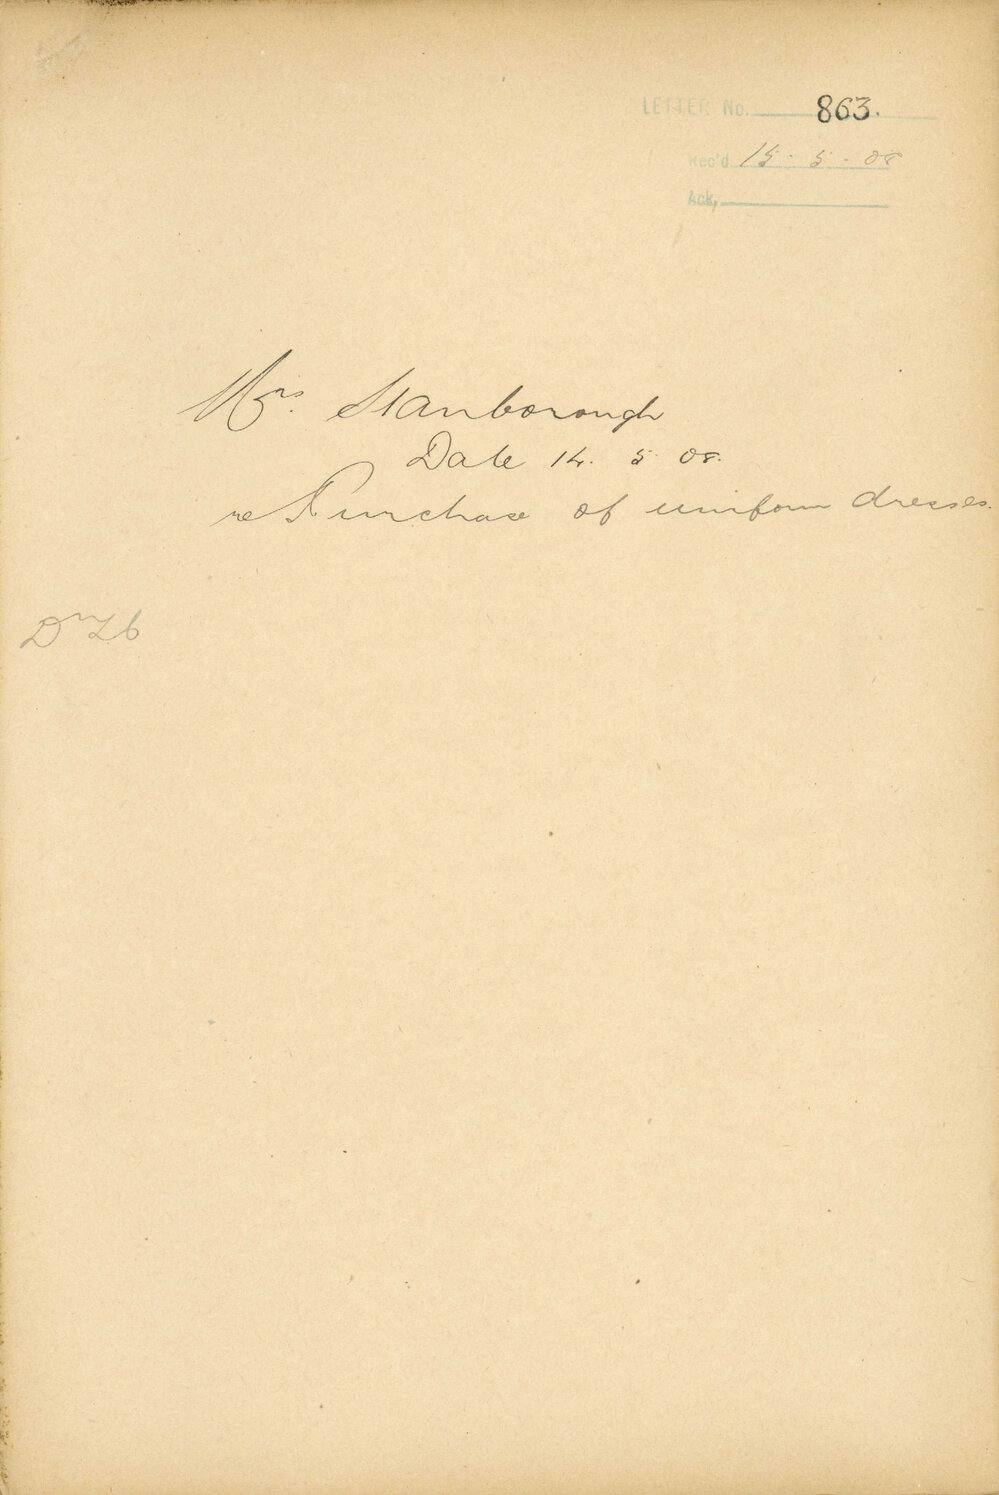 LETTER No. 863.
Rec'd 15 - 5 - 08
Ack,
Mrs. Stanborough
Date 14. 5 08.
re Purchase of uniform dresses.